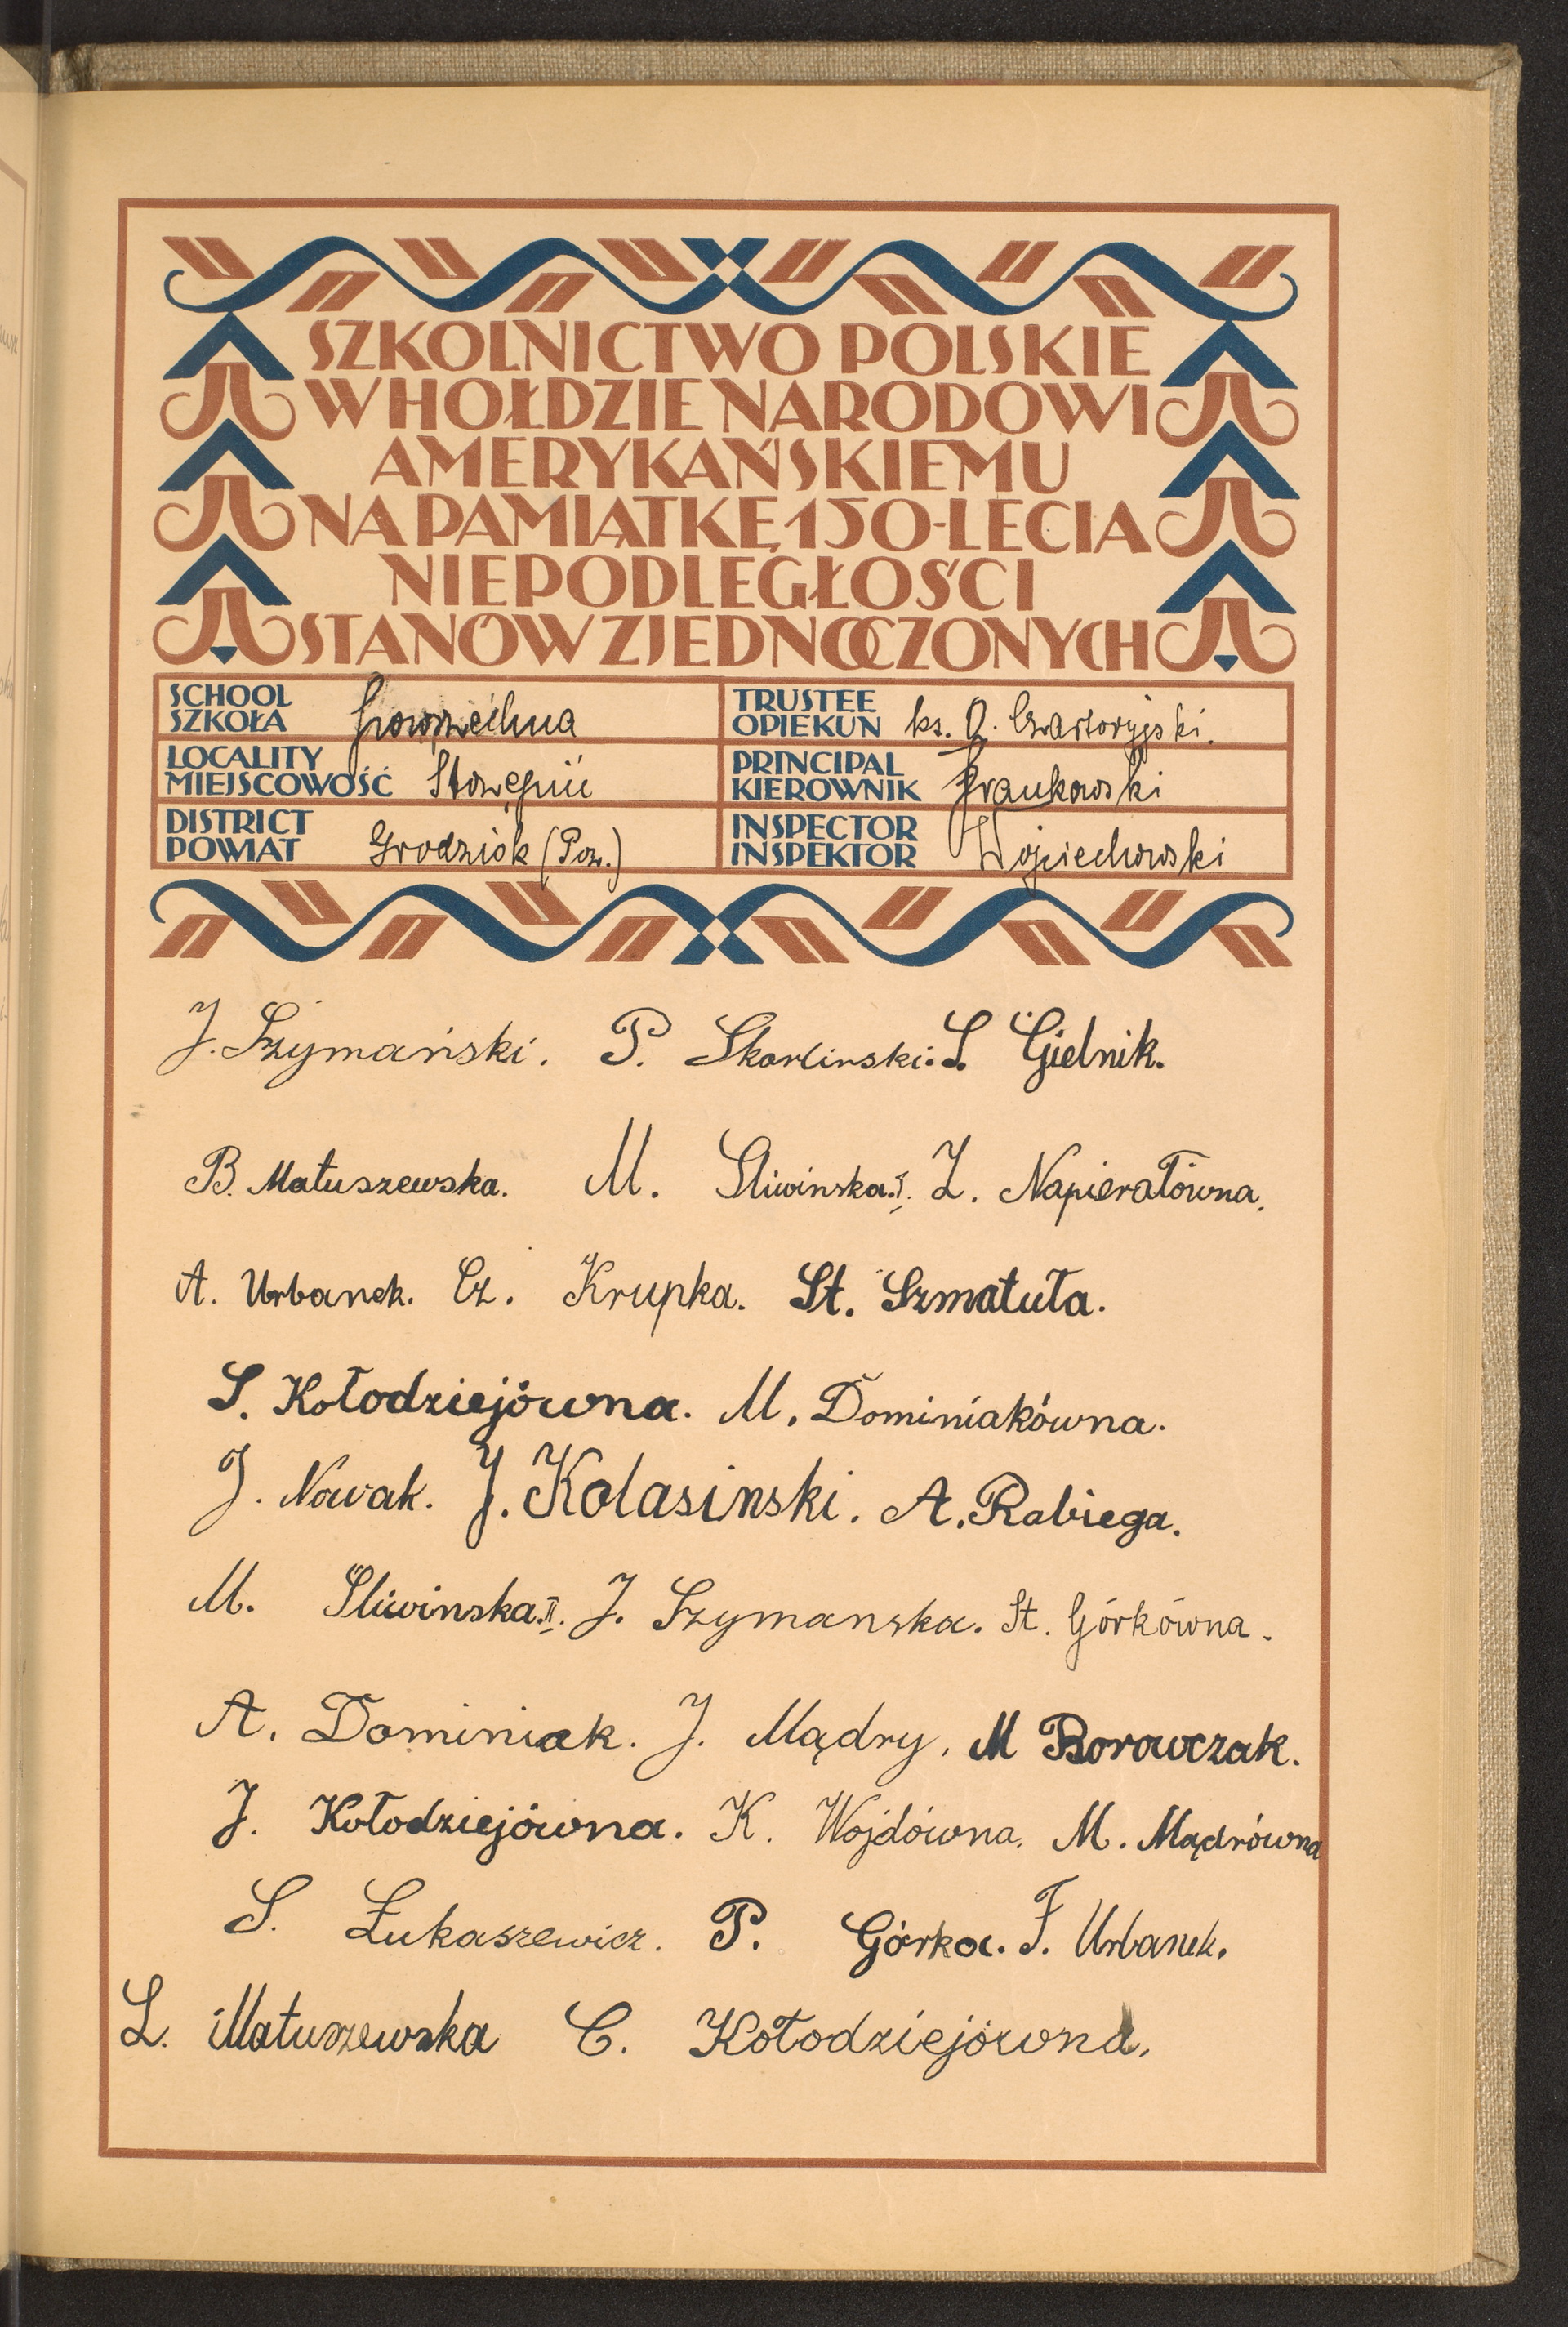 SZKOLNICTWO POLSKIE
W HOŁDZIE NARODOWI
AMERYKAŃSKIEMU
NA PAMIĄTKĘ 150-LECIA
NIEPODLEGŁOŚCI
STANÓW ZJEDNOCZONYCH
SCHOOL
SZKOŁA powszechna
TRUSTEE
OPIEKUN ks. O. Czartoryjski.
LOCALITY
MIEJSCOWOŚĆ
PRINCIPAL
KIEROWNIK Frankowski
DISTRICT
POWIAT Grodzisk (Poz.)
INSPECTOR
INSPEKTOR Wojciechowski
J. Szymański. P. Skorlinski. S. Gielnik.
B. Matuszewska. M. Sliwinska.I. Z. Napierałówna.
A. Urbanek. Cz. Krupka. St. Szmatuła.
S. Kołodziejówna. M. Dominiakówna.
J. Nowak. J. Kolasinski. A. Rabiega.
M. Sliwinska.II. J. Szymanska. St. Górkówna.
A. Dominiak. J. Mądry. M Borowczak.
J. Kołodziejówna. K. Wojdówna. M. Mądrówna
S. Łukaszewicz. P. Górka. F. Urbanek.
L. Matuszewska C. Kołodziejówna.